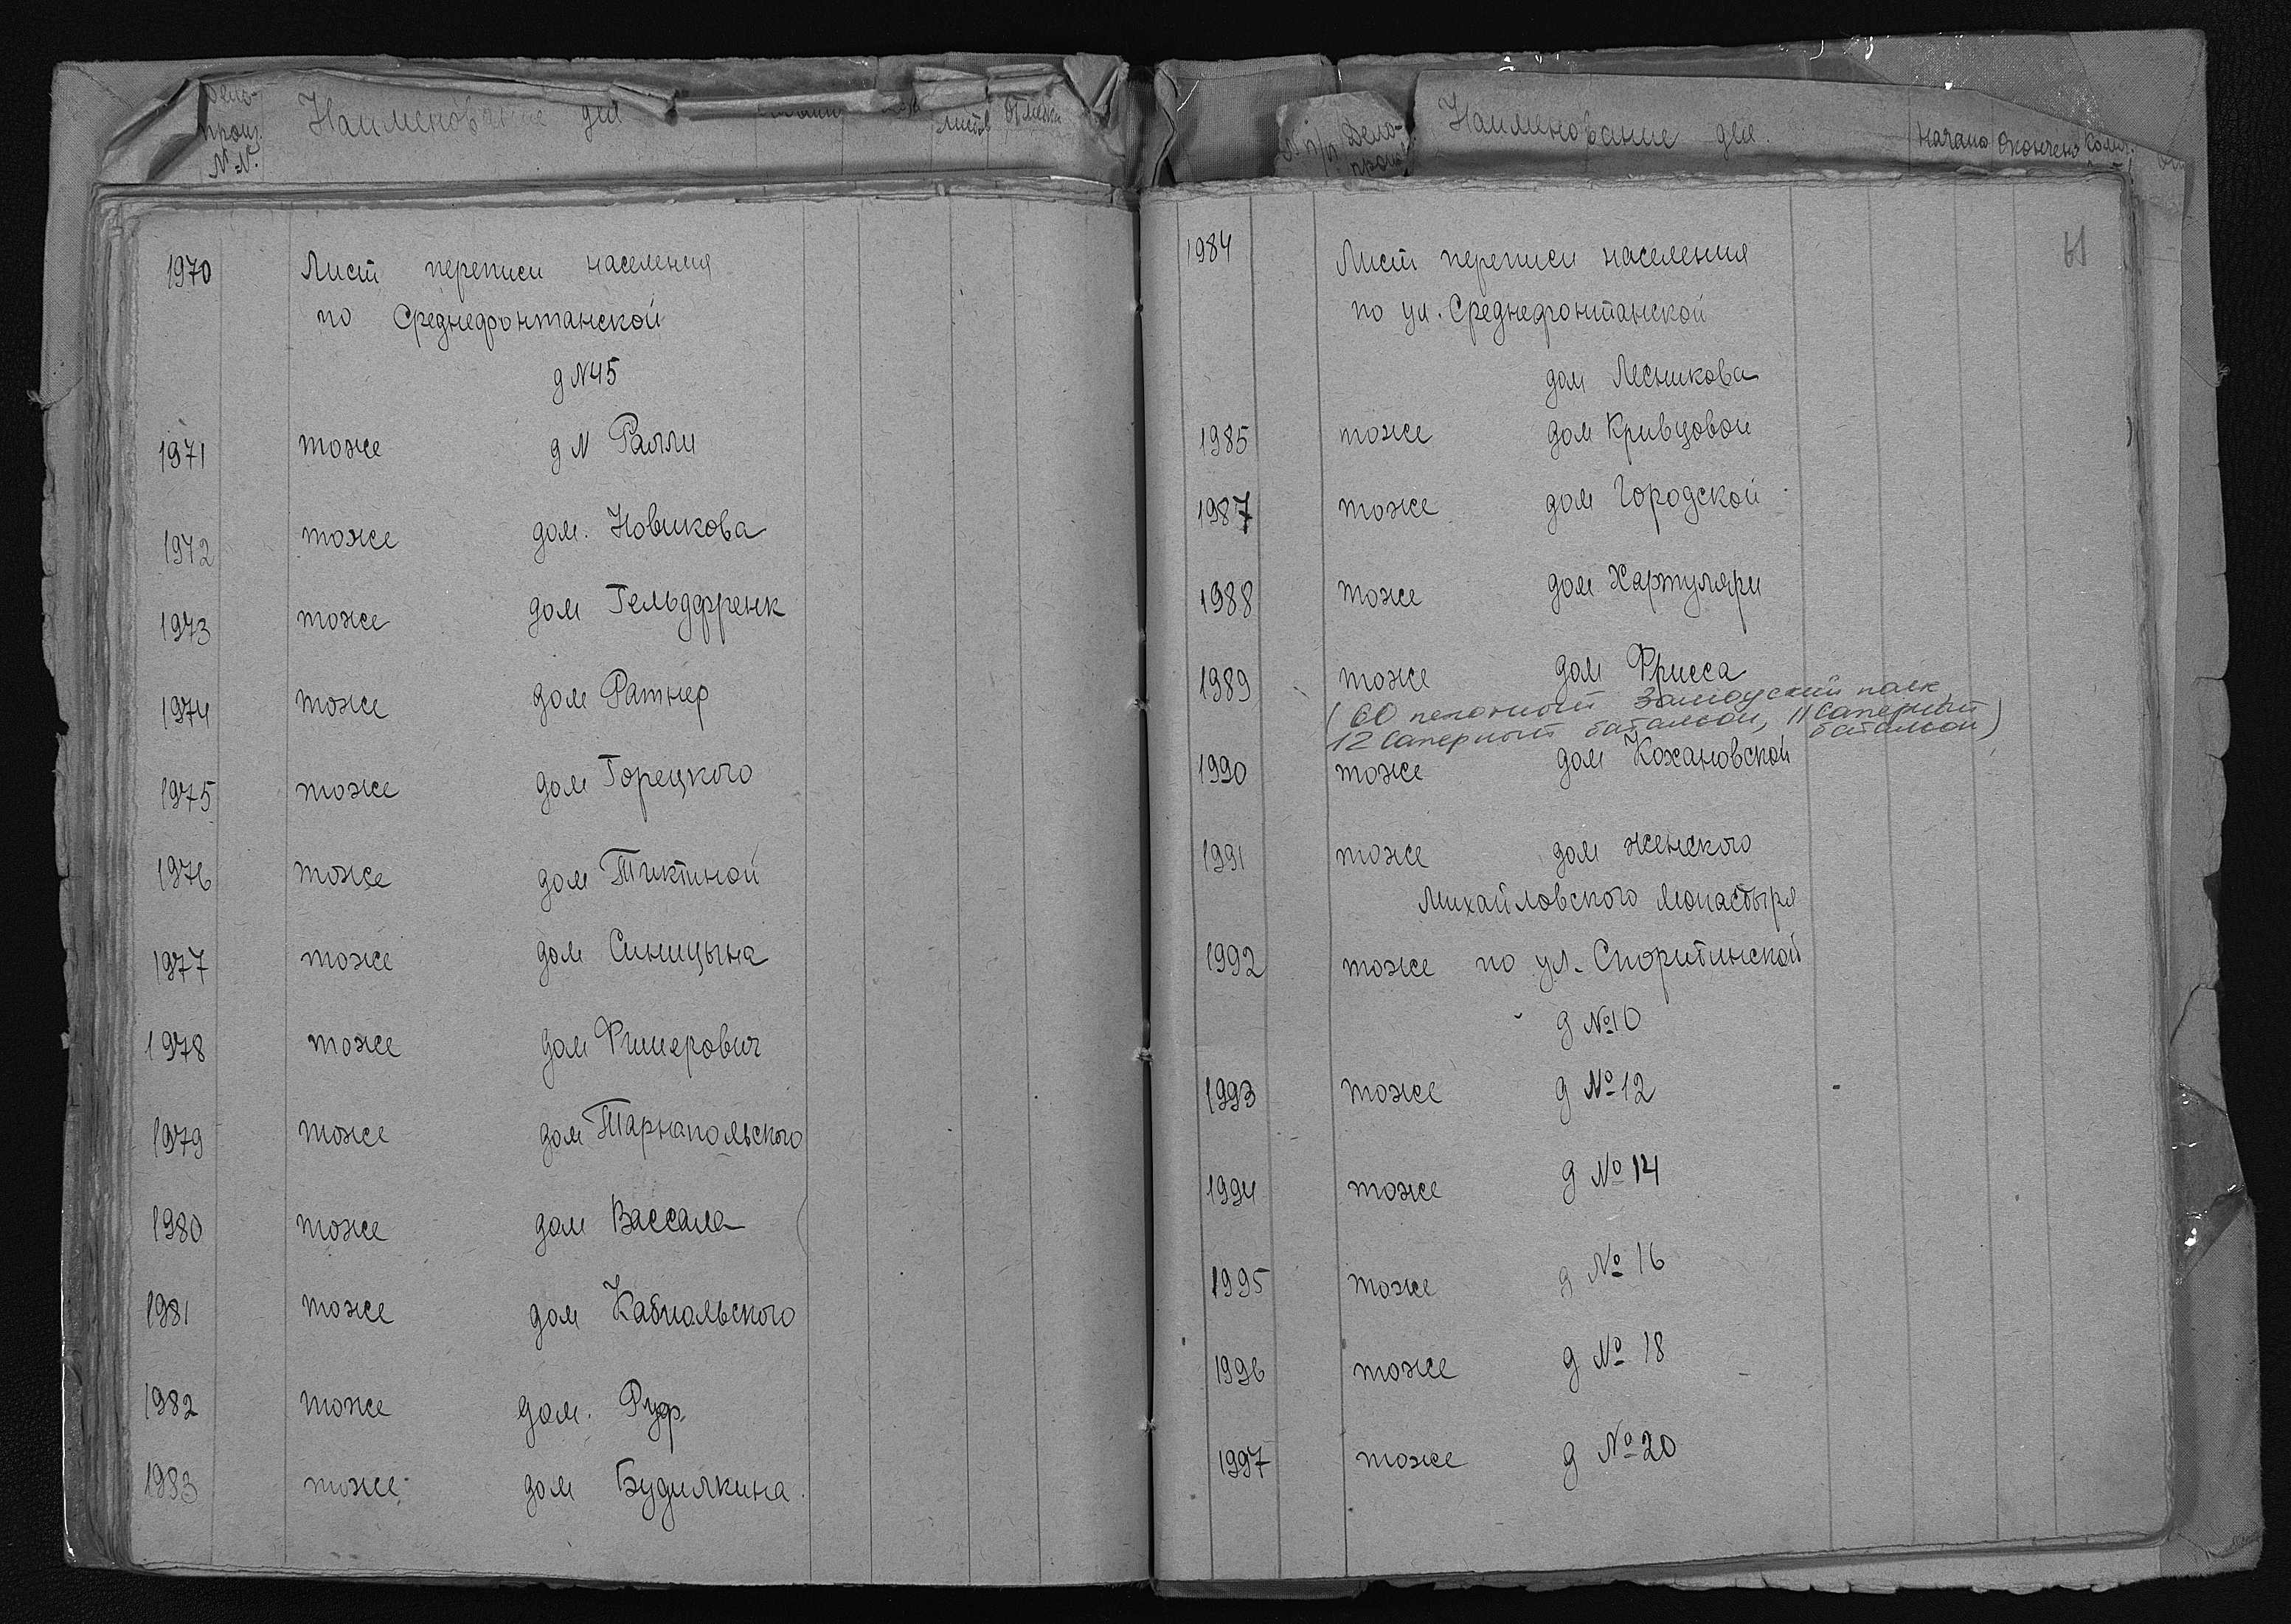 Дело-
произ.
N.N.
Наименование дел
листов
Отметки
1970 Лист переписи населения
по Среднефонтанской
д N45
1971 тоже д N Ралли
1972 тоже дом. Новикова
1973 тоже дом Гельдфренк
1974 тоже дом Ратнер
1975 тоже дом Горецкого
1976 тоже дом Тиктиной
1977 тоже дом Синицына
1978 тоже дом Фишерович
1979 тоже дом Тарнапольского
1980 тоже дом Вассала
1981 тоже дом Кабиольского
1982 тоже дом. Руф
1983 тоже дом Будилкина
N п/п
Дело-
произ.
Наименование дел.
Начато Окончено Колич.
61
1984 Лист переписи населения
по ул. Среднефонтанской
дом Лесникова
1985 тоже дом Кривцовой
1987 тоже дом Городской
1988 тоже дом Хартуляри
1989 тоже дом Фриеса
(60 пехотный Замоуский полк,
12 Саперный баталион, 11 Саперный
баталион)
1990 тоже дом Кохановской
1991 тоже дом женского
Михайловского монастыря
1992 тоже по ул. Споритинской
д №10
1993 тоже д №12
1994 тоже д №14
1995 тоже д №16
1996 тоже д №18
1997 тоже д №20